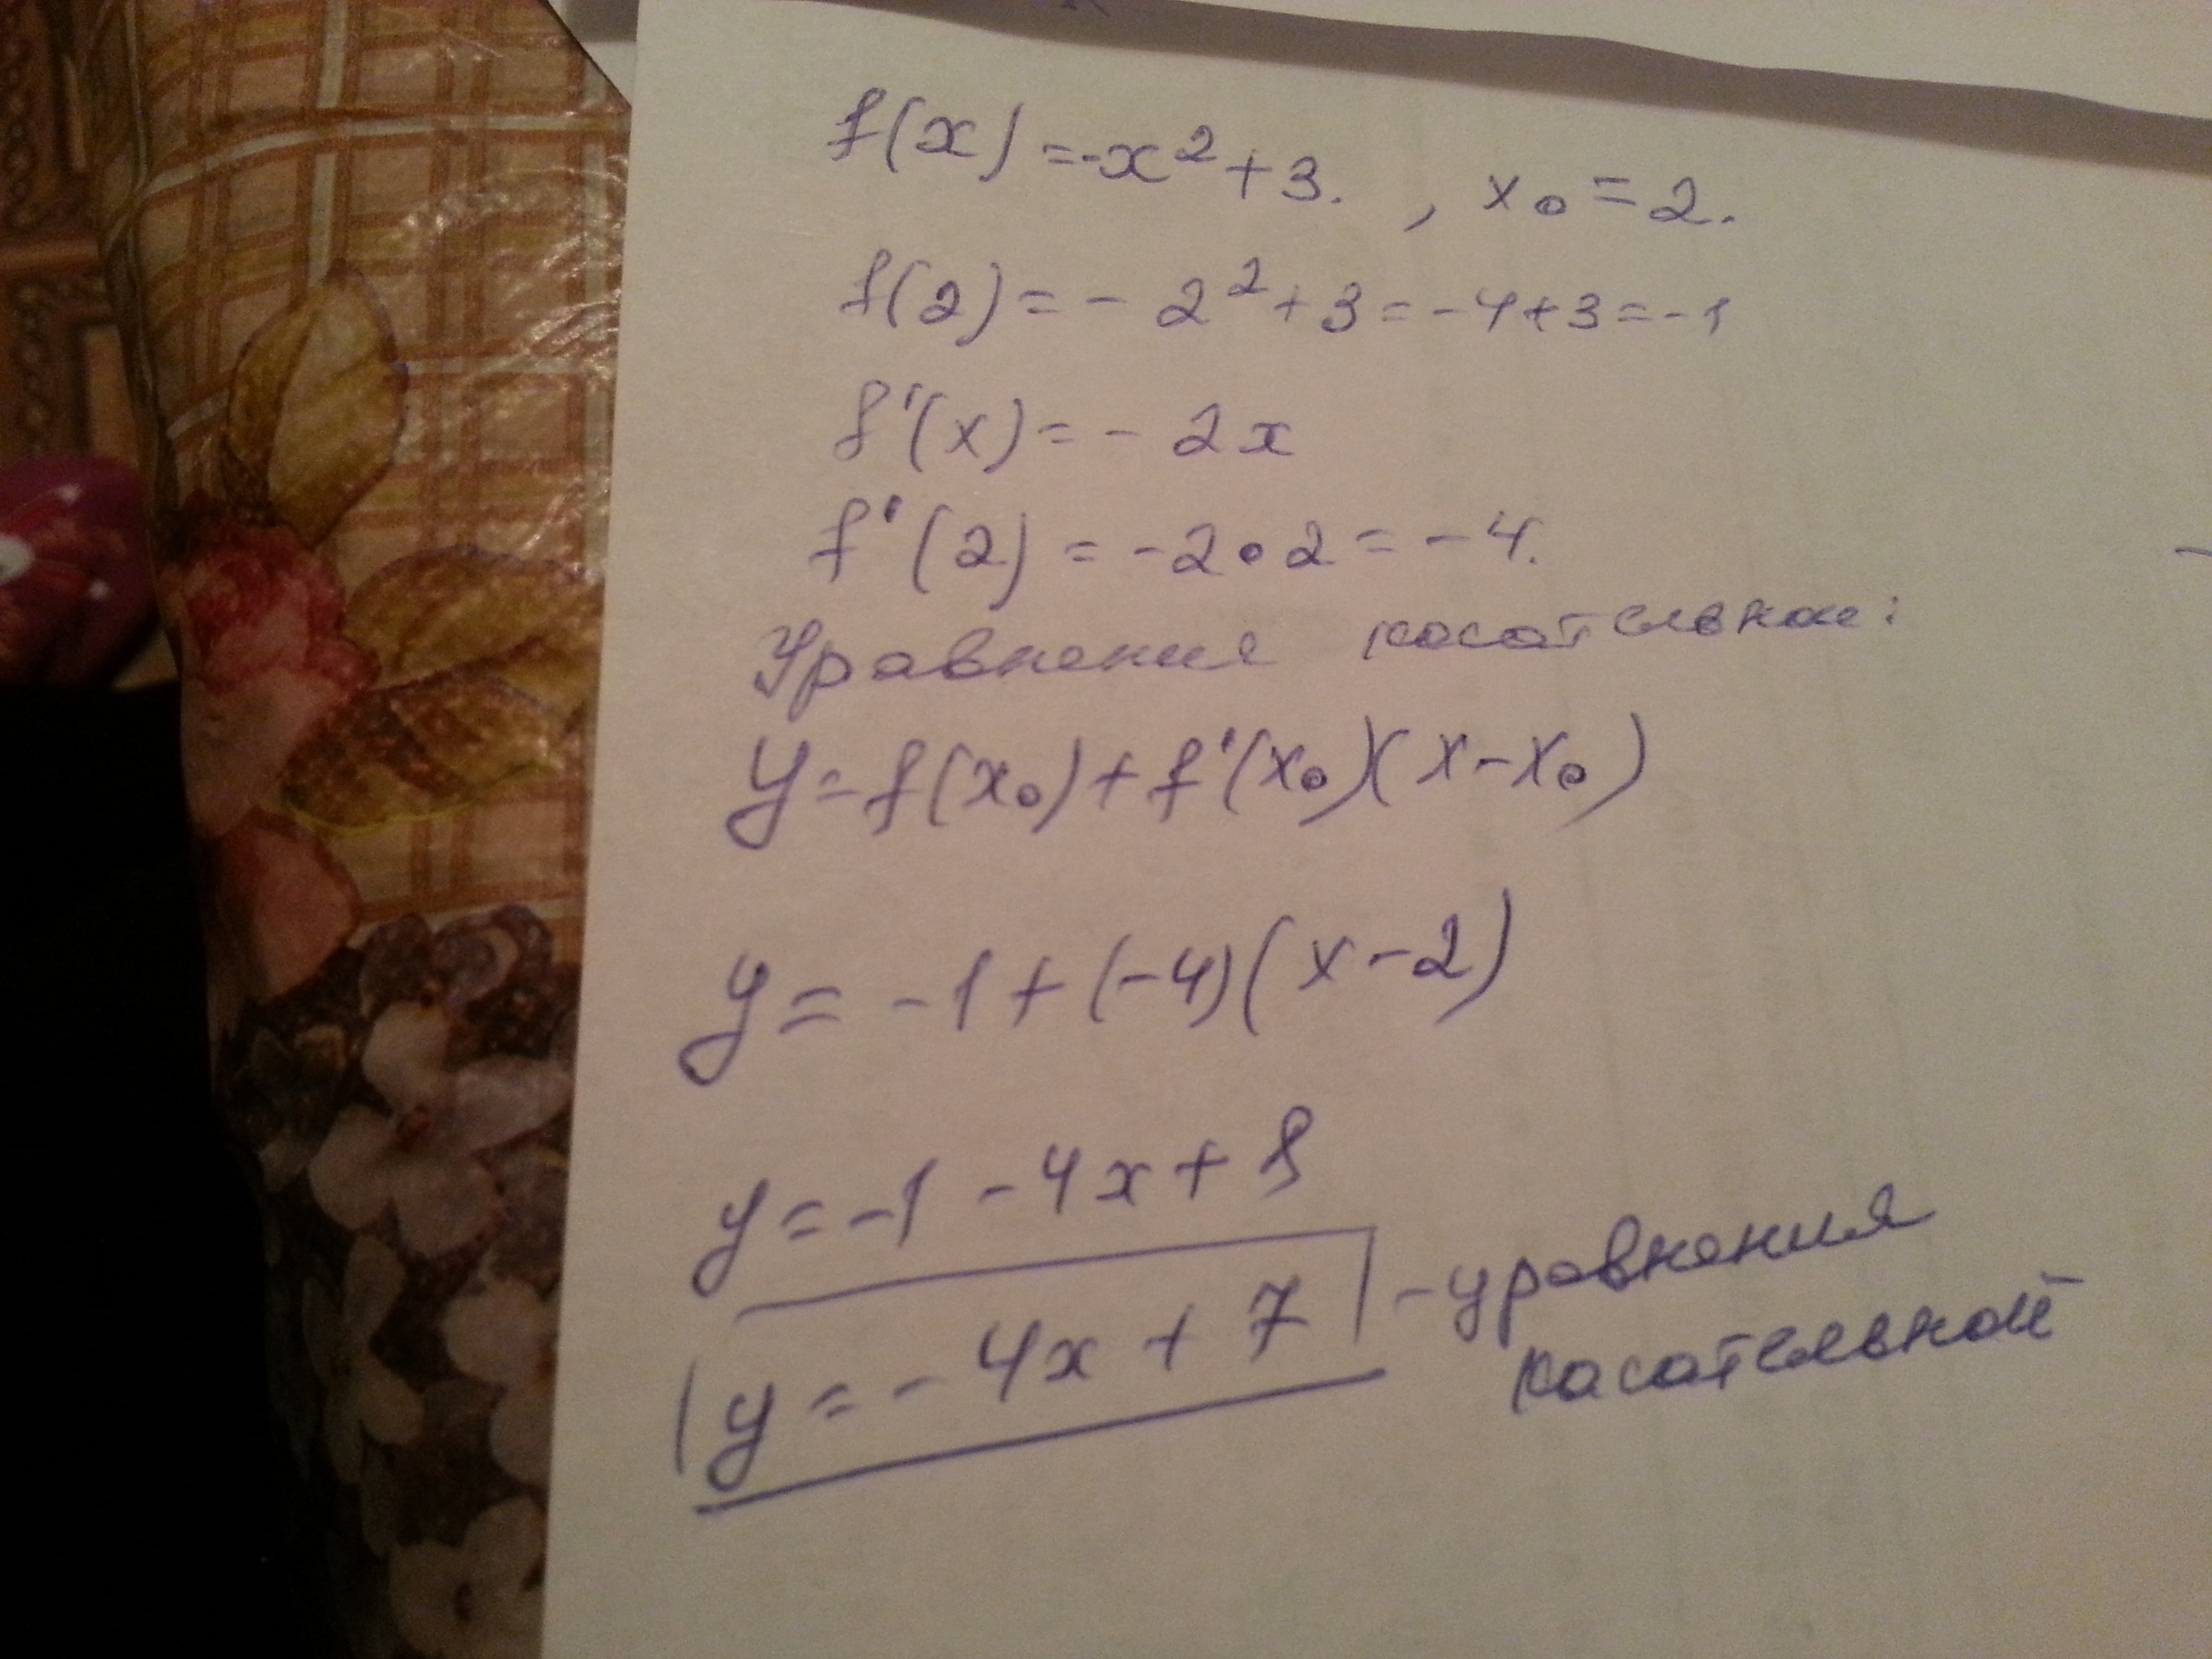 f(x) =-x²+3. , x₀=2.
f(2)=- 2²+3=-4+3=-1
f'(x)=- 2x
f'(2) = -2•2=-4.
Уравнения касательной:
y=f(x₀)+f'(x₀)(x-x₀)
y= -1+(-4)(x-2)
y=-1-4x+8
y=-4x+7 -уравнения
касательной